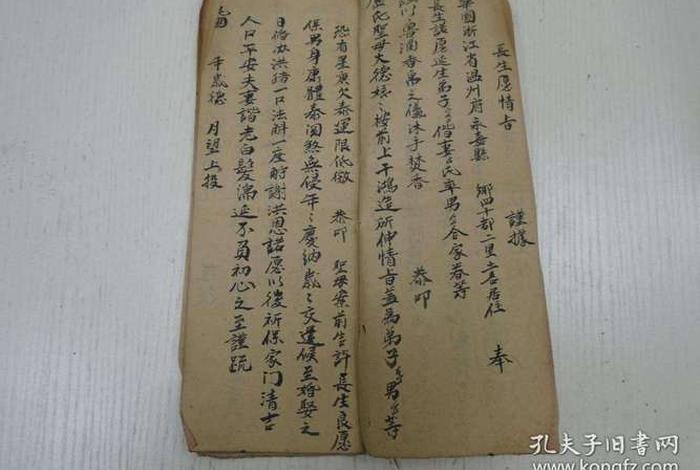 長生愿情旨 謹據
國浙江省温州府永嘉縣 鄉四十都二里 居住 奉
長生諾愿延生弟子 偕妻 氏率男 合家眷等
以 沐手焚香 恭叩
氏聖母大德娘々 按前上干鴻造所伸情旨蓋為弟子 男 等
恐有星庚欠泰運限低微 恭叩 聖母案前告許長生良愿
保男身康體泰関煞無侵年々慶納歲々交 候至婚娶之
日俻办洪猪一口法斛一座酧謝洪恩諾愿以後祈保家门清吉
人口平安夫妻諧老白髮 延不負初心之至謹疏
年歲德 月望上投
孔夫子旧书网
www.kongfz.com